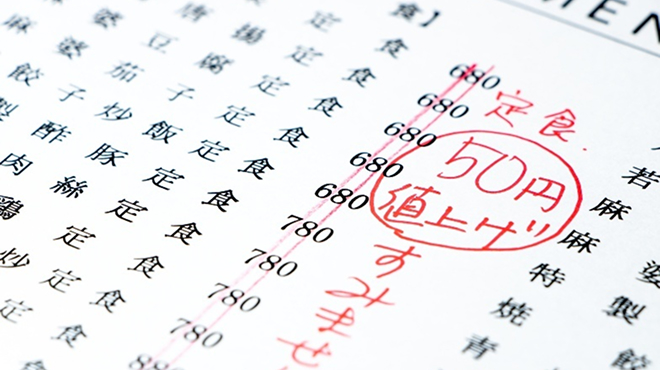 MEN
食】
定食 680
唐揚定食 680
婆豆腐定食 680
麻婆茄子定食 680
餃子炒飯定食 680
製酢豚定食 780
肉絲定食 780
鶏定食 780
炒定食 780
定食 88
定食
50円
値上げ
すみませ
若
麻
麻婆
特製
焼餃
青